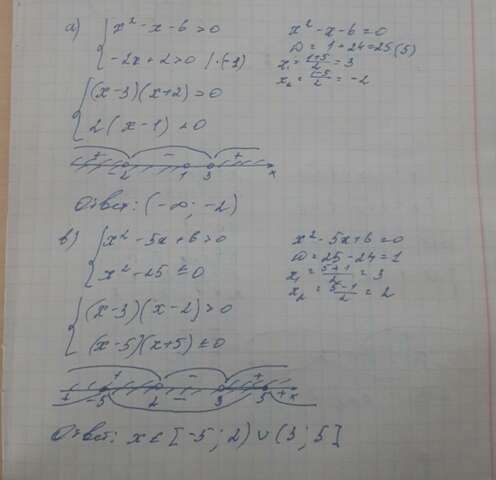 а) { x² - x - 6 > 0
-2x + 2 > 0 | ·(-1)
x² - x - 6 = 0
D = 1 + 24 = 25 (5)
x₁ = (1+5)/2 = 3
x₂ = (1-5)/2 = -2
{ (x-3)(x+2) > 0
2(x-1) < 0
+ - +
-2 1 3 x
Ответ: (-∞; -2)
в) { x² - 5x + 6 > 0
x² - 25 ≤ 0
x² - 5x + 6 = 0
D = 25 - 24 = 1
x₁ = (5+1)/2 = 3
x₂ = (5-1)/2 = 2
{ (x-3)(x-2) > 0
(x-5)(x+5) ≤ 0
+ - +
+ -5 2 - 3 5 + x
Ответ: x ∈ [-5; 2) ∪ (3; 5]